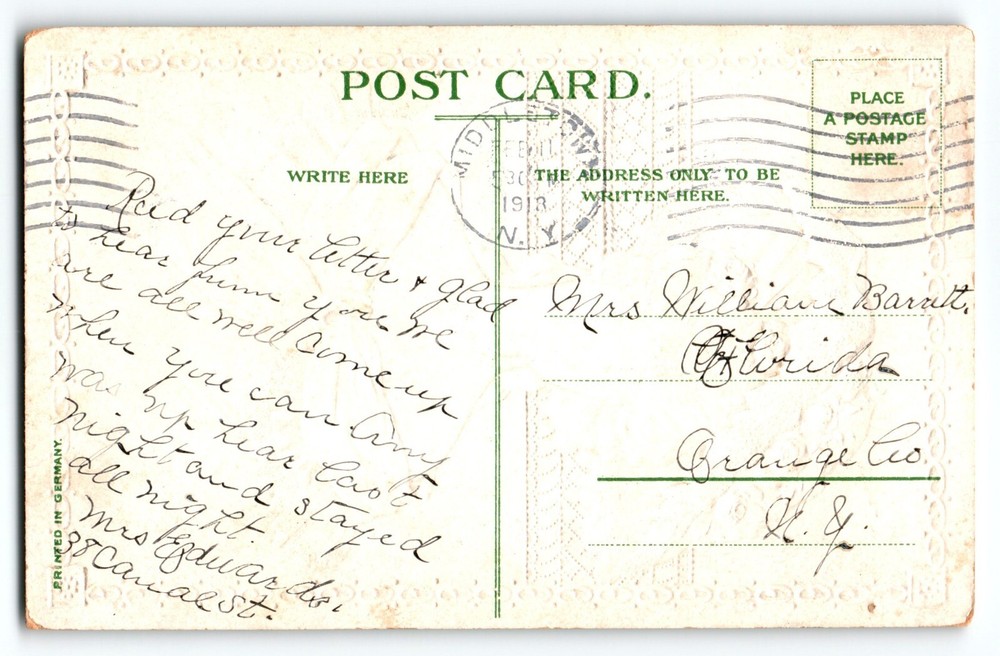 POST CARD.
PLACE
A POSTAGE
STAMP
HERE.
MIDDLETOWN
FEB 11
1918
N. Y.
WRITE HERE
THE ADDRESS ONLY TO BE
WRITTEN HERE.
Recd your letter & glad
to hear from you we
are all well Come up
when you can Amy
was up hear last
night and stayed
all night.
Mrs Edwards.
38 Canal St.
Mrs William Barrett.
Florida
Orange Co
N. Y.
PRINTED IN GERMANY.